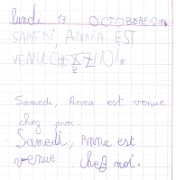 lundi 13 OCTOBRE
SAMEDI, ANNA EST
VENU CHEZ MOI.
Samedi, Anna est venue
chez moi.
Samedi, Anne est
venue chez moi.